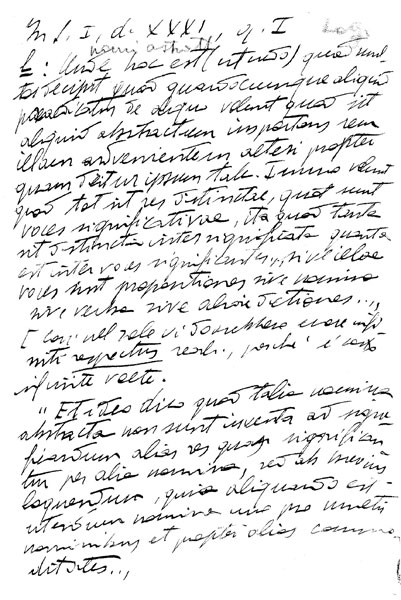 In l. I, d. XXXI, q. I
nomi astratti
E: Unde hoc est (ut credo) quod mul-
tos decipit quod quandocumque aliquid
praedicatur de aliquo volunt quod sit
aliquid abstractum importans rem
illam advenientem alteri propter
quam dicitur ipsum tale. Immo volunt
quod tot sint res distinctae, quot sunt
voces significativae, ita quod tanta
sit distinctio inter significata quanta
est inter voces significantes, sive illae
voces sint propositiones sive nomina
sive verba sive aliae dictiones..,,
[ nel sole vi dovrebbero essere infi-
niti respectus reali, perché è causa
infinite volte.
"Et ideo dico quod talia nomina
abstracta non sunt inventa ad signi-
ficandum alias res quam significan-
tur per alia nomina, sed ob brevius
loquendum, quia aliquando est
utendum nomine uno pro multis
nominibus et propter alias commo-
ditates..,,